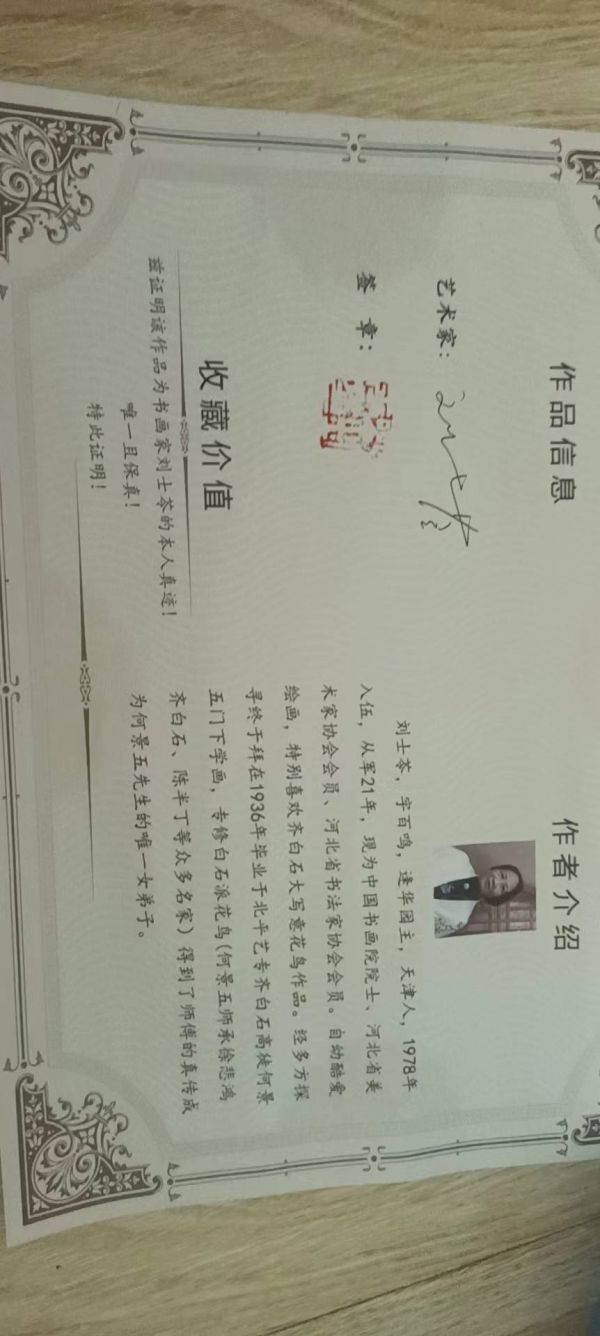 作品信息
艺术家：
签 章：
收藏价值
兹证明该作品为书画家刘士苓的本人真迹！
唯一且保真！
特此证明！
作者介绍
刘士苓，字百鸣，逢华园主，天津人，1978年
入伍，从军21年，现为中国书画院院士、河北省美
术家协会会员、河北省书法家协会会员。自幼酷爱
绘画，特别喜欢齐白石大写意花鸟作品。经多方探
寻终于拜在1936年毕业于北平艺专齐白石高徒何景
五门下学画，专修白石派花鸟(何景五师承徐悲鸿
齐白石、陈半丁等众多名家）得到了师傅的真传成
为何景五先生的唯一女弟子。